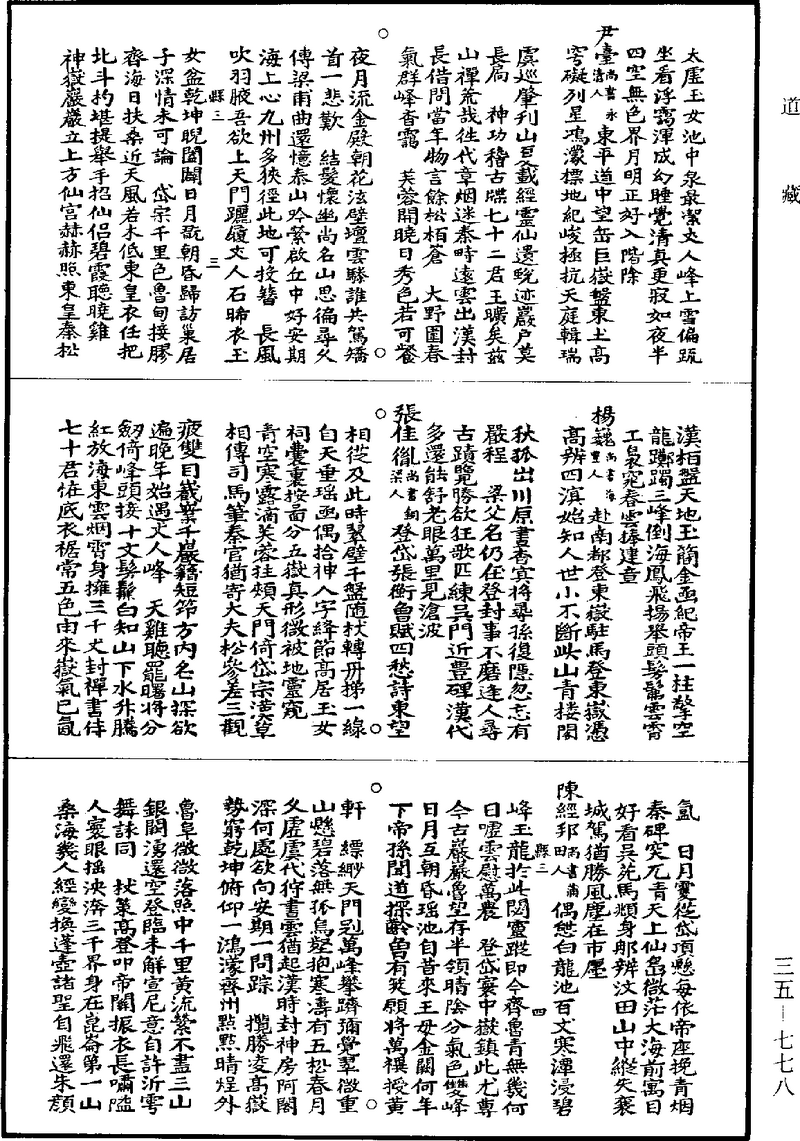 道藏
太虛玉女池中泉最潔丈人峰上雪偏疏
坐看浮靄渾成幻睡覺清真更寂如夜半
四空無色界月明正好入階除
尹臺尚書永清人東平道中望岳巨嶽盤東土高
穹礙列星鴻濛標地紀峻極抗天庭輯瑞
虞巡肇刋山夏載經靈仙遺蛻迹巖户莫
長扃　神功稽古牒七十二君王曠矣兹
山禪荒哉徃代章烟迷秦畤遠雲出漢封
長借問當年物言餘松栢蒼　大野圍春
氣群峰香靄　芙蓉開曉日秀色若可餐
夜月流金殿朝花泫壁壇雲驂誰共駕矯
首一悲歎　結髮懷幽尚名山思徧尋久
傳梁甫曲還憶泰山吟縈啟丘中好安期
海上心九州多狹徑此地可投簪　長風
吹羽腋吾欲上天門躡履丈人石晞衣玉
縣三　三
女盆乾坤睨闔闢日月既朝昏歸訪巢居
子深情未可論　岱宗千里色魯甸接膠
齊海日扶桑近天風若木低東皇衣任把
北斗抅堪提舉手招仙侣碧霞聽曉雞
神嶽巖巖立上方仙宫赫赫照東皇秦松
漢栢盤天地玉簡金函紀帝王一拄擎空
龍躑躅三峰倒海鳳飛揚舉頭髣髴雲霄
工衮冕春雲捧建章
楊巍尚書海豐人赴南都登東嶽駐馬登東嶽憑
高辨四滇始知人世小不斷此山青楼閣
秋孤出川原晝杳㝠將尋孫復隱忽忘有
嚴程　梁父名仍在登封事不磨逢人尋
古蹟覽勝欲狂歌匹練吳門近豊碑漢代
多還能舒老眼萬里見滄波
張佳胤尚書銅梁人登岱張衡魯賦四愁詩東望
相從及此時翠壁千盤随杖轉丹梯一線
白天垂瑶函偶拾神人字絳節高居玉女
祠囊裏按啚分五嶽真形微被地靈窺
青空寒露滴芙蓉挂頰天門倚岱宗漢草
相傳司馬筆秦官猶寄大夫松參差三觀
疲雙目嶻嶪千巖籍短笻方内名山探欲
遍晚年始遇丈人峰　天雞聽罷曙將分
劔倚峰頭接十文髣髴白知山下水升騰
紅放海東雲烟霄身擁三千丈封禪書侍
七十君恠底衣裾常五色由來嶽氣已氤
氲　日月雙從岱頂懸每依帝座挽青烟
秦碑突兀青天上仙島微茫大海前寓目
好看吳苑馬頫身郍辨汶田山中縱失裘
城駕猶勝風塵在市㕓
陳經邦尚書莆田人　偶憩白龍池百文寒潭浸碧
縣三　四
峰玉龍於此閟靈蹤即今齊魯青無幾何
日噓雲慰萬農　登岱寰中嶽鎮此尤尊
今古巖巖魯望存半領晴陰分氣色雙峰
日月互朝昏瑶池自昔來王母金闕何年
下帝孫聞道探齡曽有䇲願將萬禩授黄
軒　縹緲天門冠萬峰攀躋彌覺翠微重
山懸碧落無孤鳥壑抱寒濤有五松春月
久虚虞代狩書雲猶起漢時封神房阿閣
深何處欲向安期一問踪　攬勝凌高嶽
勢窮乾坤俯仰一鴻濛齊州點點晴烟外
魯阜微微落照中千里黄流縈不盡三山
銀闕湧還空登臨未解宣尼意自許沂雩
舞詠同　杖䇲髙登叩帝關振衣長嘯隘
人寰眼揺泱漭三千界身在崑崙第一山
桑海幾人經變換蓬壺諸聖自飛還朱顔
三五—七七八